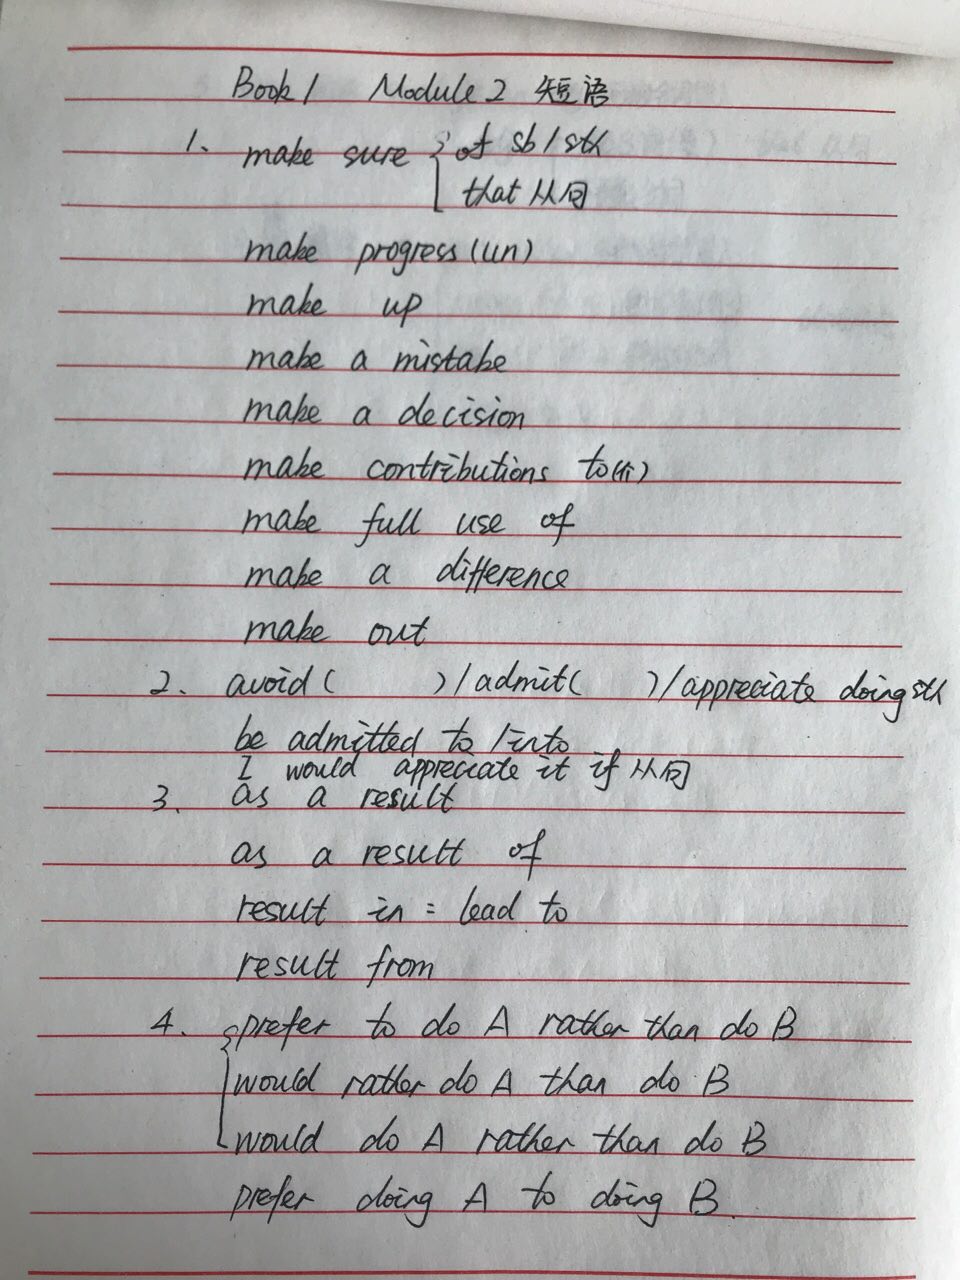 Book 1 Module 2 短语
1. make sure { of sb / sth
that 从句
make progress (un)
make up
make a mistake
make a decision
make contributions to (介)
make full use of
make a difference
make out
2. avoid ( ) / admit ( ) / appreciate doing sth
be admitted to / into
I would appreciate it if 从句
3. as a result
as a result of
result in = lead to
result from
4. { prefer to do A rather than do B
would rather do A than do B
would do A rather than do B
prefer doing A to doing B.